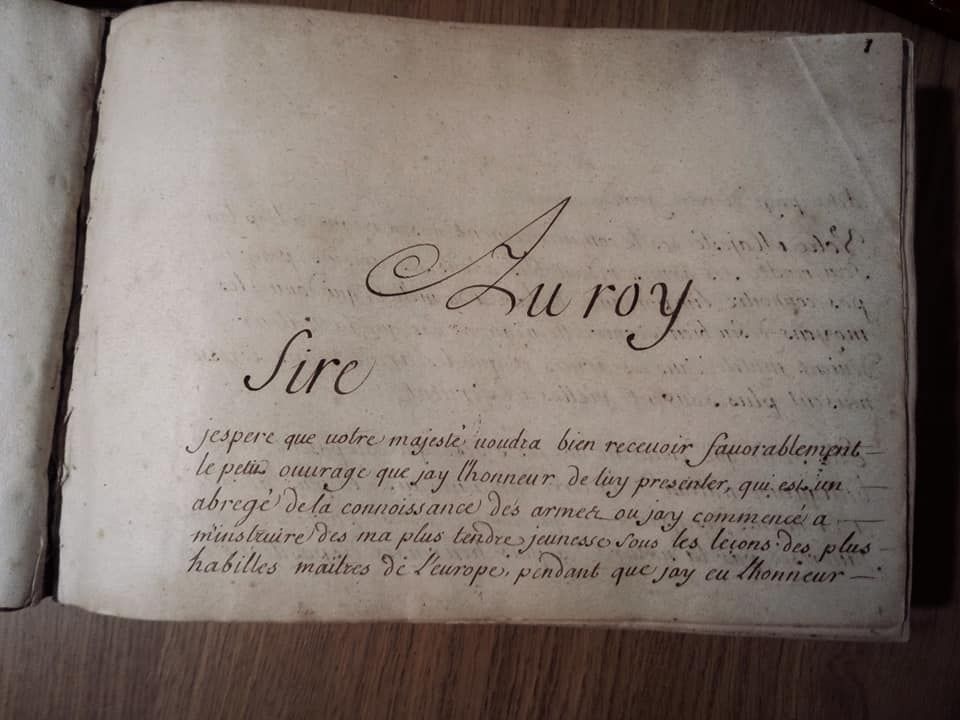 1
Au roy
Sire
jespere que votre majesté voudra bien recevoir favorablement
le petit ouvrage que jay l'honneur de luy presenter, qui est un
abregé de la connoissance des armes ou jay commencé a
m'instruire des ma plus tendre jeunesse sous les leçons des plus
habilles maitres de l'europe, pendant que jay eu l'honneur